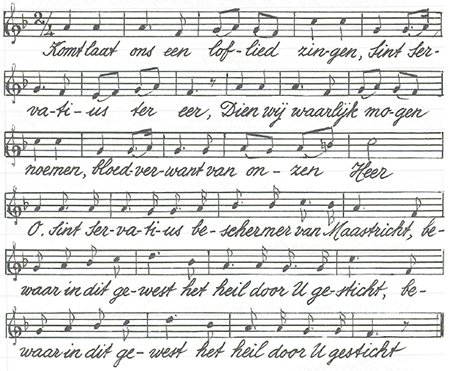 2/4
Komt laat ons een lof-lied zin-gen, Sint Ser-
va-ti-us ter eer, Dien wij waarlijk mo-gen
noemen, bloed-ver-want van on-zen Heer
O, Sint Ser-va-ti-us be-schermer van Maastricht, be-
waar in dit ge-west het heil door U ge-sticht, be-
waar in dit ge-west het heil door U gesticht